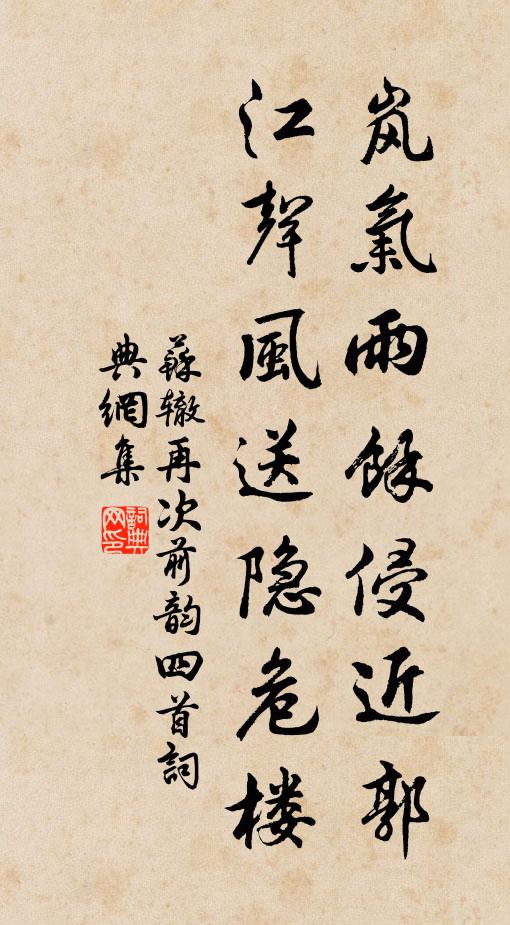 岚氣雨餘侵近郭
江聲風送隐危楼
蘇辙再次前韵四首詞
典網集
詞典
网印